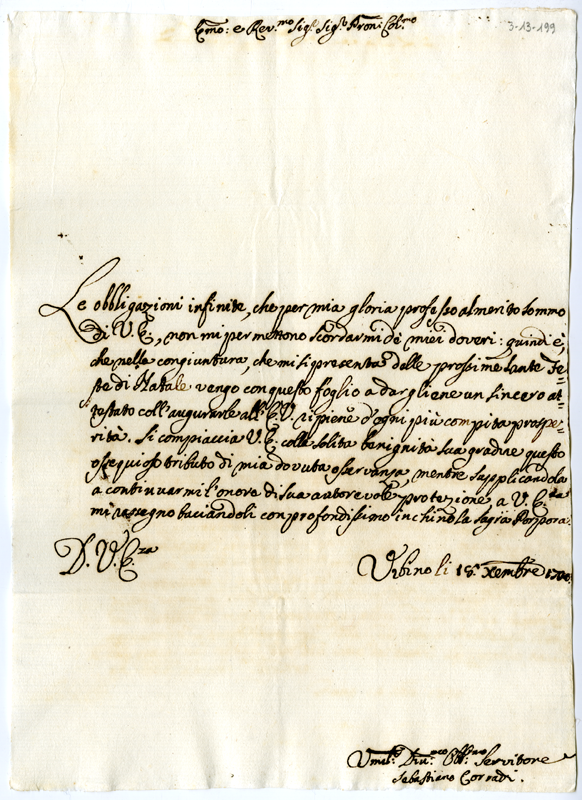 Emo: e Rev.mo Sig.r Sig.r Pron: Col.mo
3-13-199
Le obbligazioni infinite, che per mia gloria professo al merito sommo
di V. E., non mi permettono scordarmi de miei doveri: quindi è,
che nella congiuntura, che mi si presenta delle prossime Sante Fe-
ste di Natale vengo con questo foglio a dargliene un sincero at-
testato coll'augurarle all'E. V. ripiene d'ogni più compita prospe-
rità. Si compiaccia V. E. colla solita benignità sua gradire questo
ossequioso tributo di mia dovuta osservanza, mentre supplicandola
a continuarmi l'onore di sua autorevole protezione, a V. E.za
mi rassegno baciandoli con profondissimo inchino la Sagra Porpora.
D. V. E.za
Urbino li 18. Xembre
Umil.o Div.mo Obb.mo Servitore
Sebastiano Corradi.